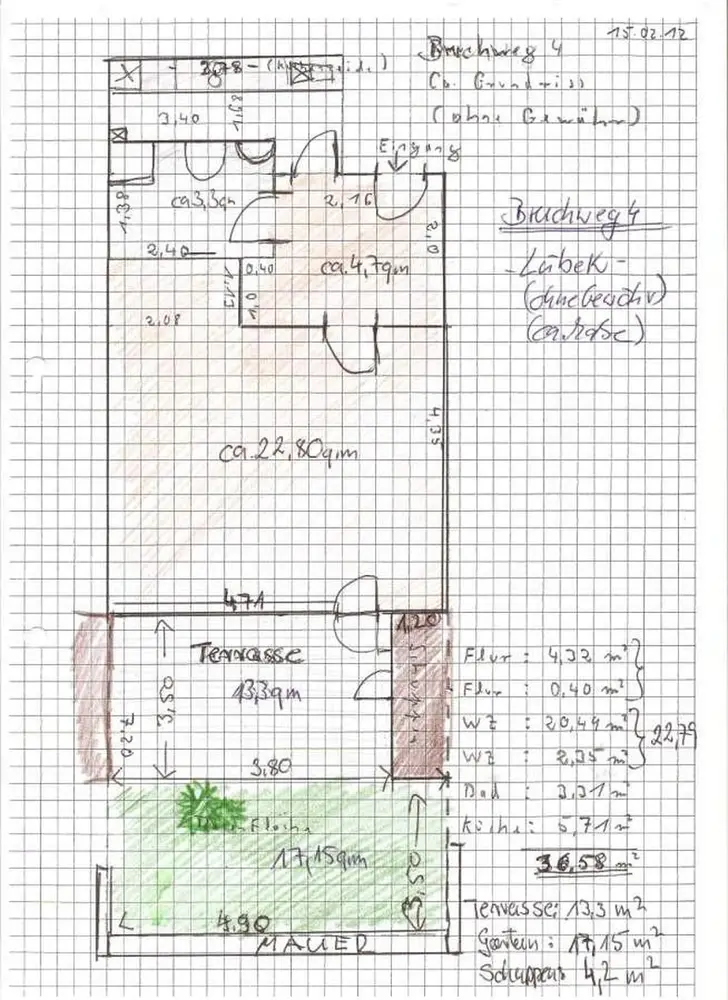 15.02.12
Bruchweg 4
Ca. Grundriss
(ohne Gewähr)
3,78
3,40
1,68
Eingang
ca 3,3qm
1,38
2,16
2,0
Bruchweg 4
2,40
0,40
ca. 4,7qm
- Lübeck -
1,13
1,0
(ohne Gewähr)
2,08
(ca. Maße)
4,35
ca. 22,80qm
4,71
1,20
Terrasse
Schuppen
13,3qm
3,50
7,20
3,80
Flur : 4,32 m²
Flur : 0,40 m²
WZ : 20,44 m²
22,79
WZ : 2,35 m²
Bad : 3,31 m²
Küche : 5,71 m²
36,58 m²
Fläche
17,15qm
3,50
4,90
MAUER
Terrasse: 13,3 m²
Garten : 17,15 m²
Schuppen: 4,2 m²